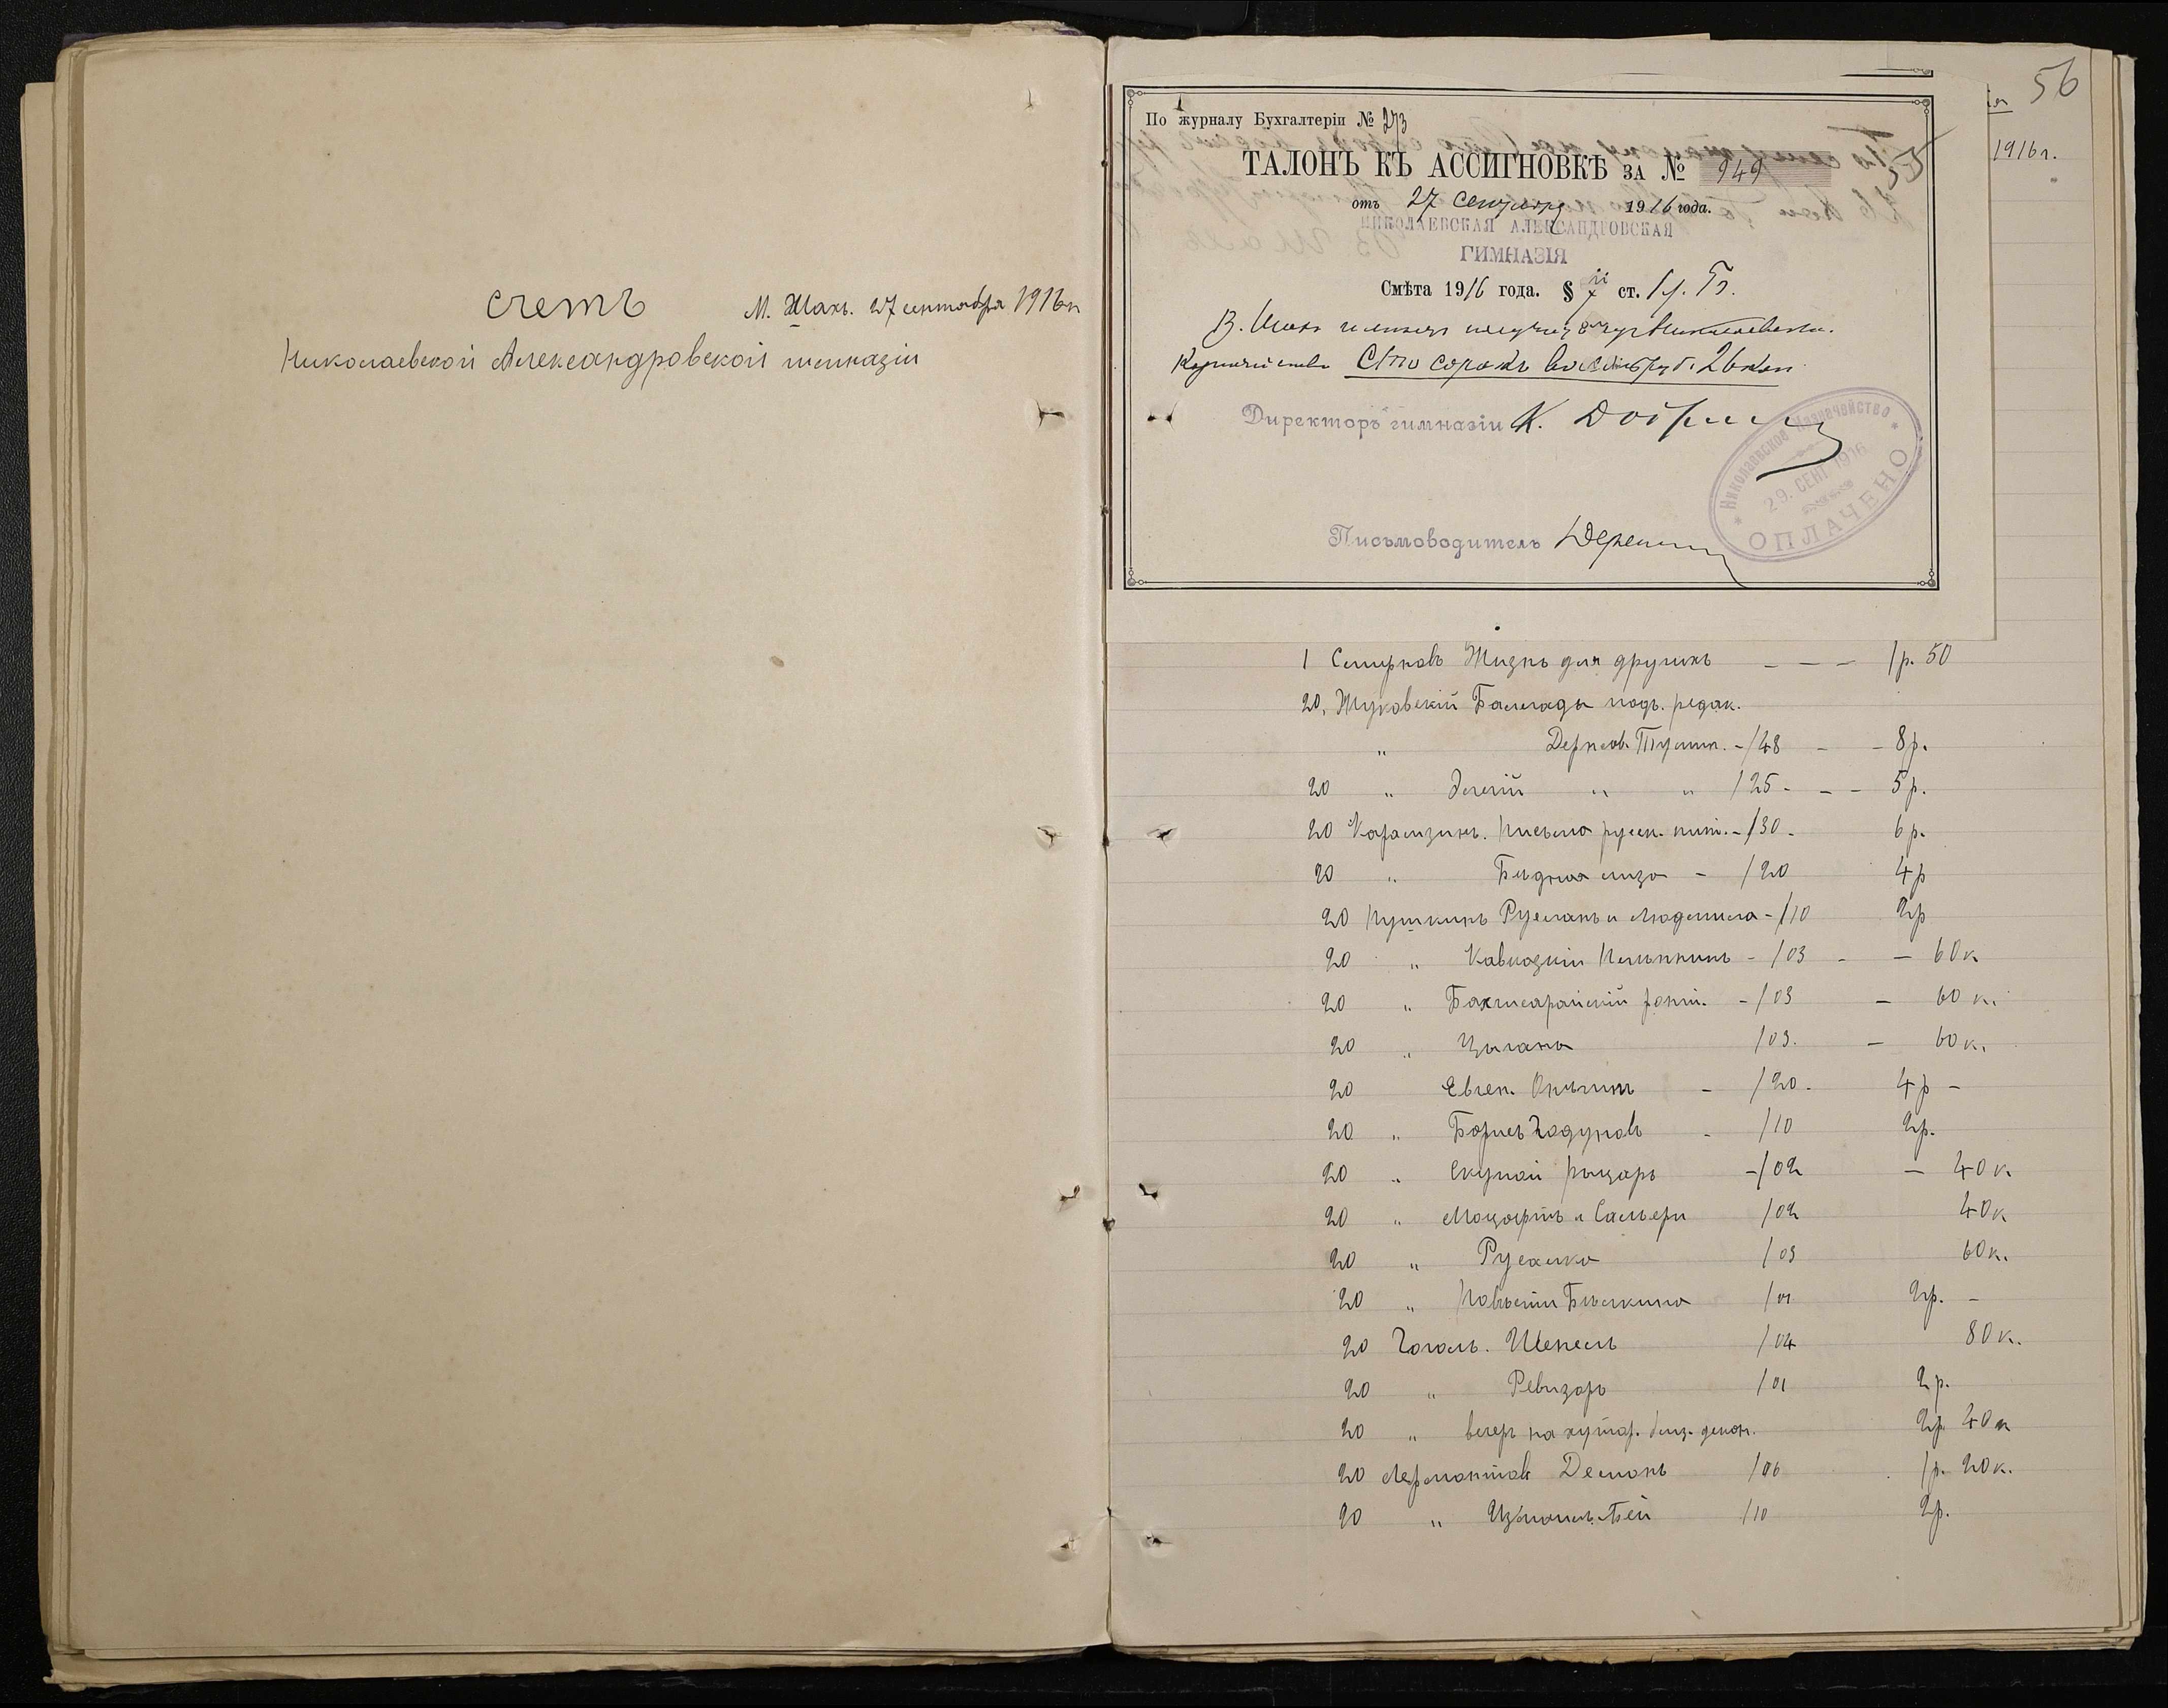 Счетъ М. Шахъ. 27 сентября 1916 г
Николаевской Александровской гимназіи
56
1916 г.
По журналу Бухгалтеріи № 273
55
ТАЛОНЪ КЪ АССИГНОВКѢ ЗА № 949
отъ 27 Сентября 1916 года.
НИКОЛАЕВСКАЯ АЛЕКСАНДРОВСКАЯ
ГИМНАЗІЯ
Смѣта 1916 года. § 7 ст. 1
В. Шахъ имѣетъ получить изъ Николаевскаго
Казначейства Сто сорокъ восемь руб. 26 коп
Директоръ гимназіи К.
Николаевское Казначейство
29. СЕН. 1916
ОПЛАЧЕНО
Письмоводитель
1 Смирновъ Жизнь для другихъ — — — 1 р. 50
20, Жуковскій Баллады подъ. редак.
" Дернов. - /48 — - 8 р.
20 " Элегіи " " /25 - — - 5 р.
20 Карамзинъ. Письма русск. пут. - /30 - 6 р.
20 " Бѣдная лиза - /20 4 р
20 Пушкинъ Русланъ и Людмила - /10 2 р
20 " Кавказскій Плѣнникъ - /03 - — 60 к
20 " Бахчисарайскій фонт. - /03 — 60 к.
20 " Цыганы /03. — 60 к.
20 Евген. Онѣгинъ - /20. 4 р -
20 " Борисъ Годуновъ - /10 2 р.
20 " Скупой рыцарь - /02 — 40 к
20 " Моцартъ и Сальери /02 40 к
20 " Русалка /03 60 к.
20 " Повѣсти Бѣлкина /01 2 р. -
20 Гоголь. Шенель /04 80 к.
20 " Ревизоръ /01 2 р.
20 " вечеръ на хутор. близ. декан. 2 р 40 к
20 Лермонтовъ Демонъ /06 1 р. 20 к.
20 " Измаилъ. Бей /10 2 р.